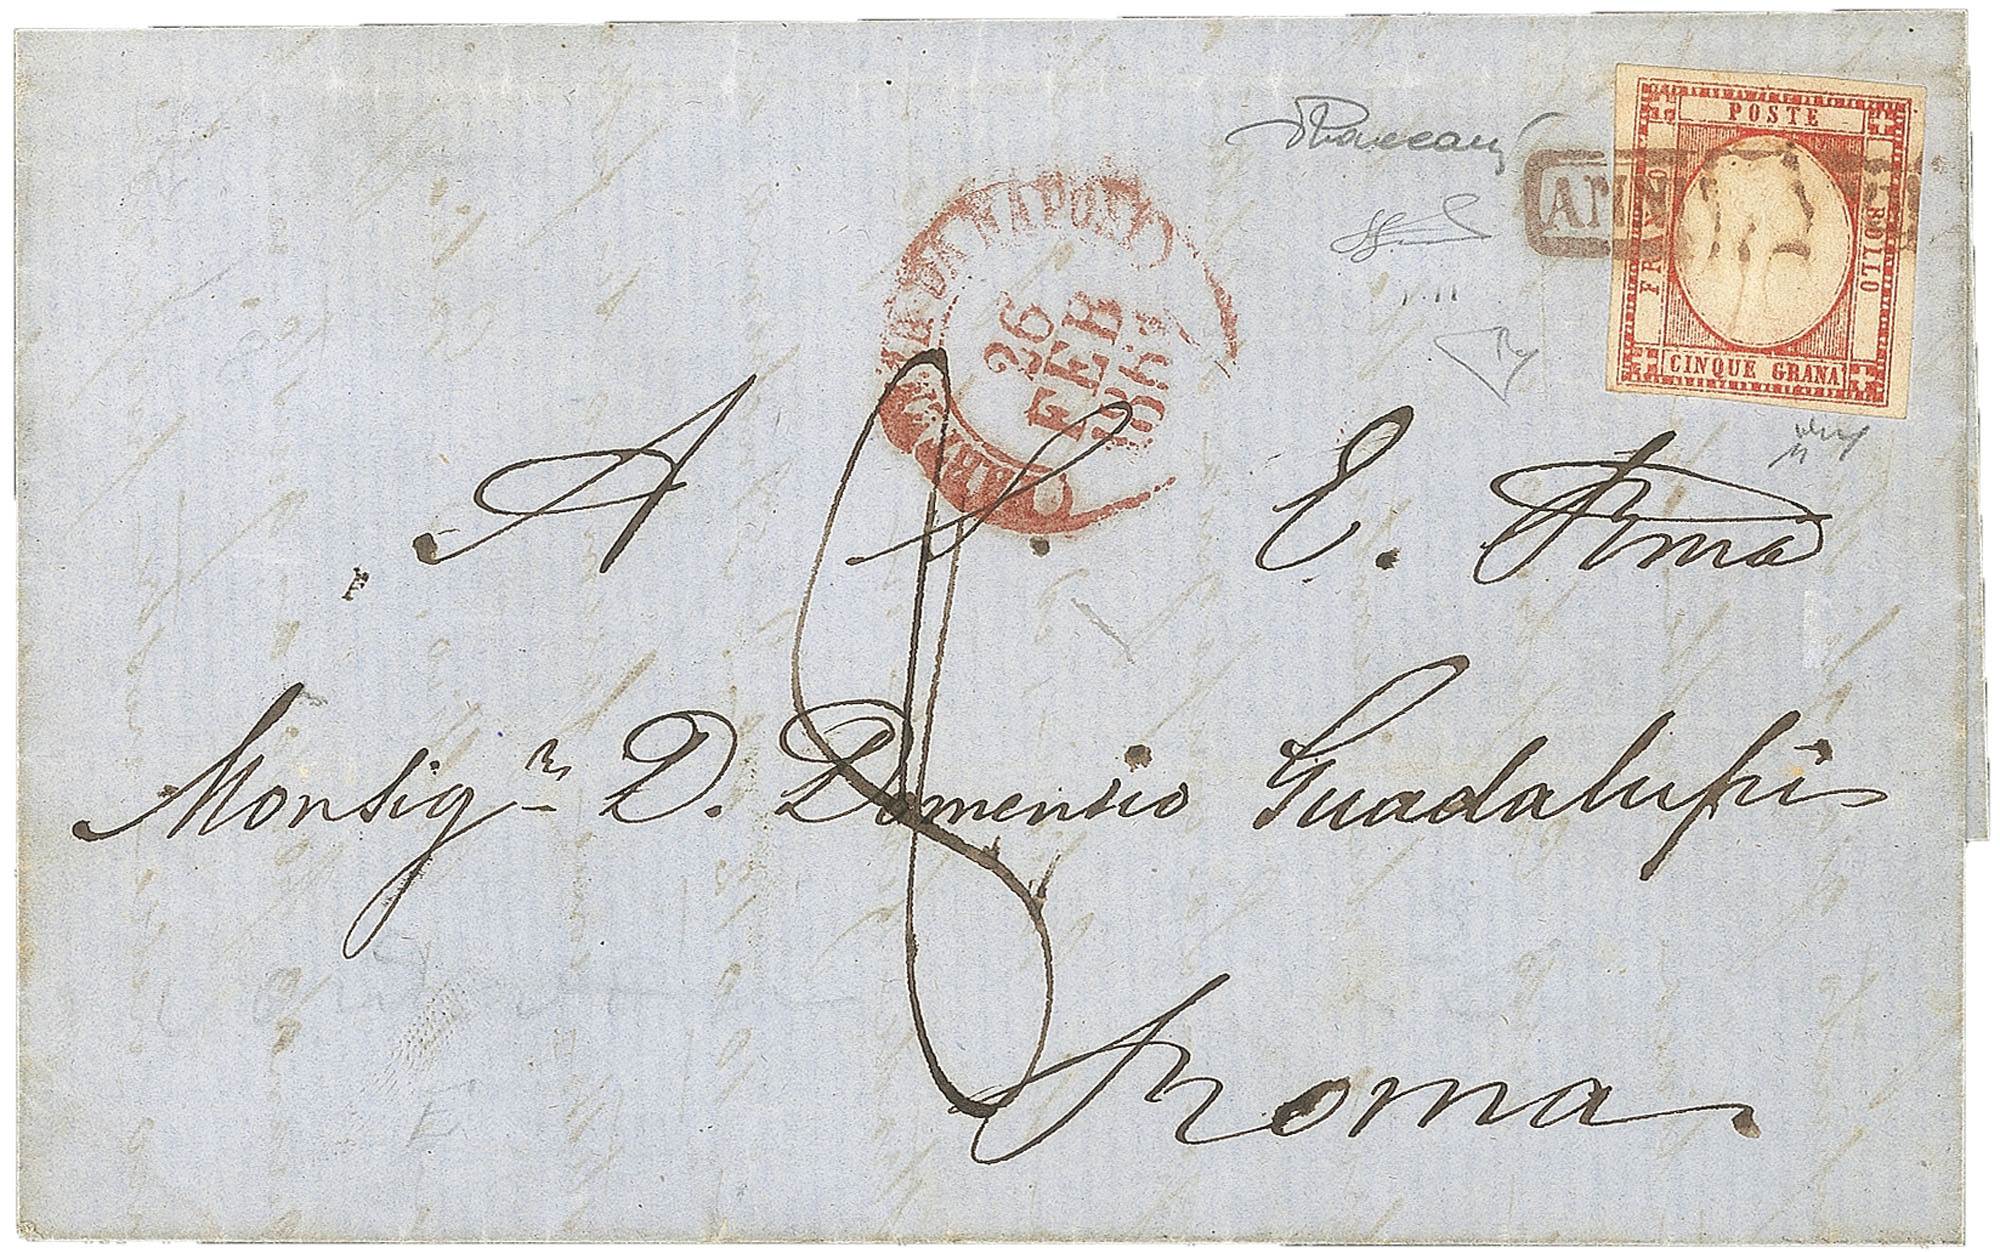 POSTE
FRANCO
BOLLO
CINQUE GRANA
DA NAPOLI
26
FEB
A S. E. Rma
Monsigr. D. Domenico Guadalupi
Roma.
8